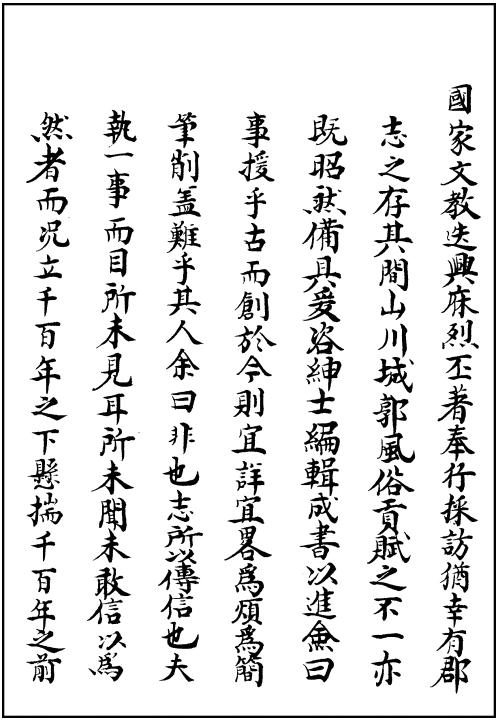 國家文教迭興庥烈丕著奉行採訪猶幸有郡
志之存其間山川城郭風俗貢賦之不一亦
既昭然備具爰咨紳士編輯成書以進僉曰
事援乎古而創於今則宜詳宜畧爲煩爲簡
筆削盖難乎其人余曰非也志所以傳信也夫
執一事而目所未見耳所未聞未敢信以爲
然者而况立千百年之下懸揣千百年之前